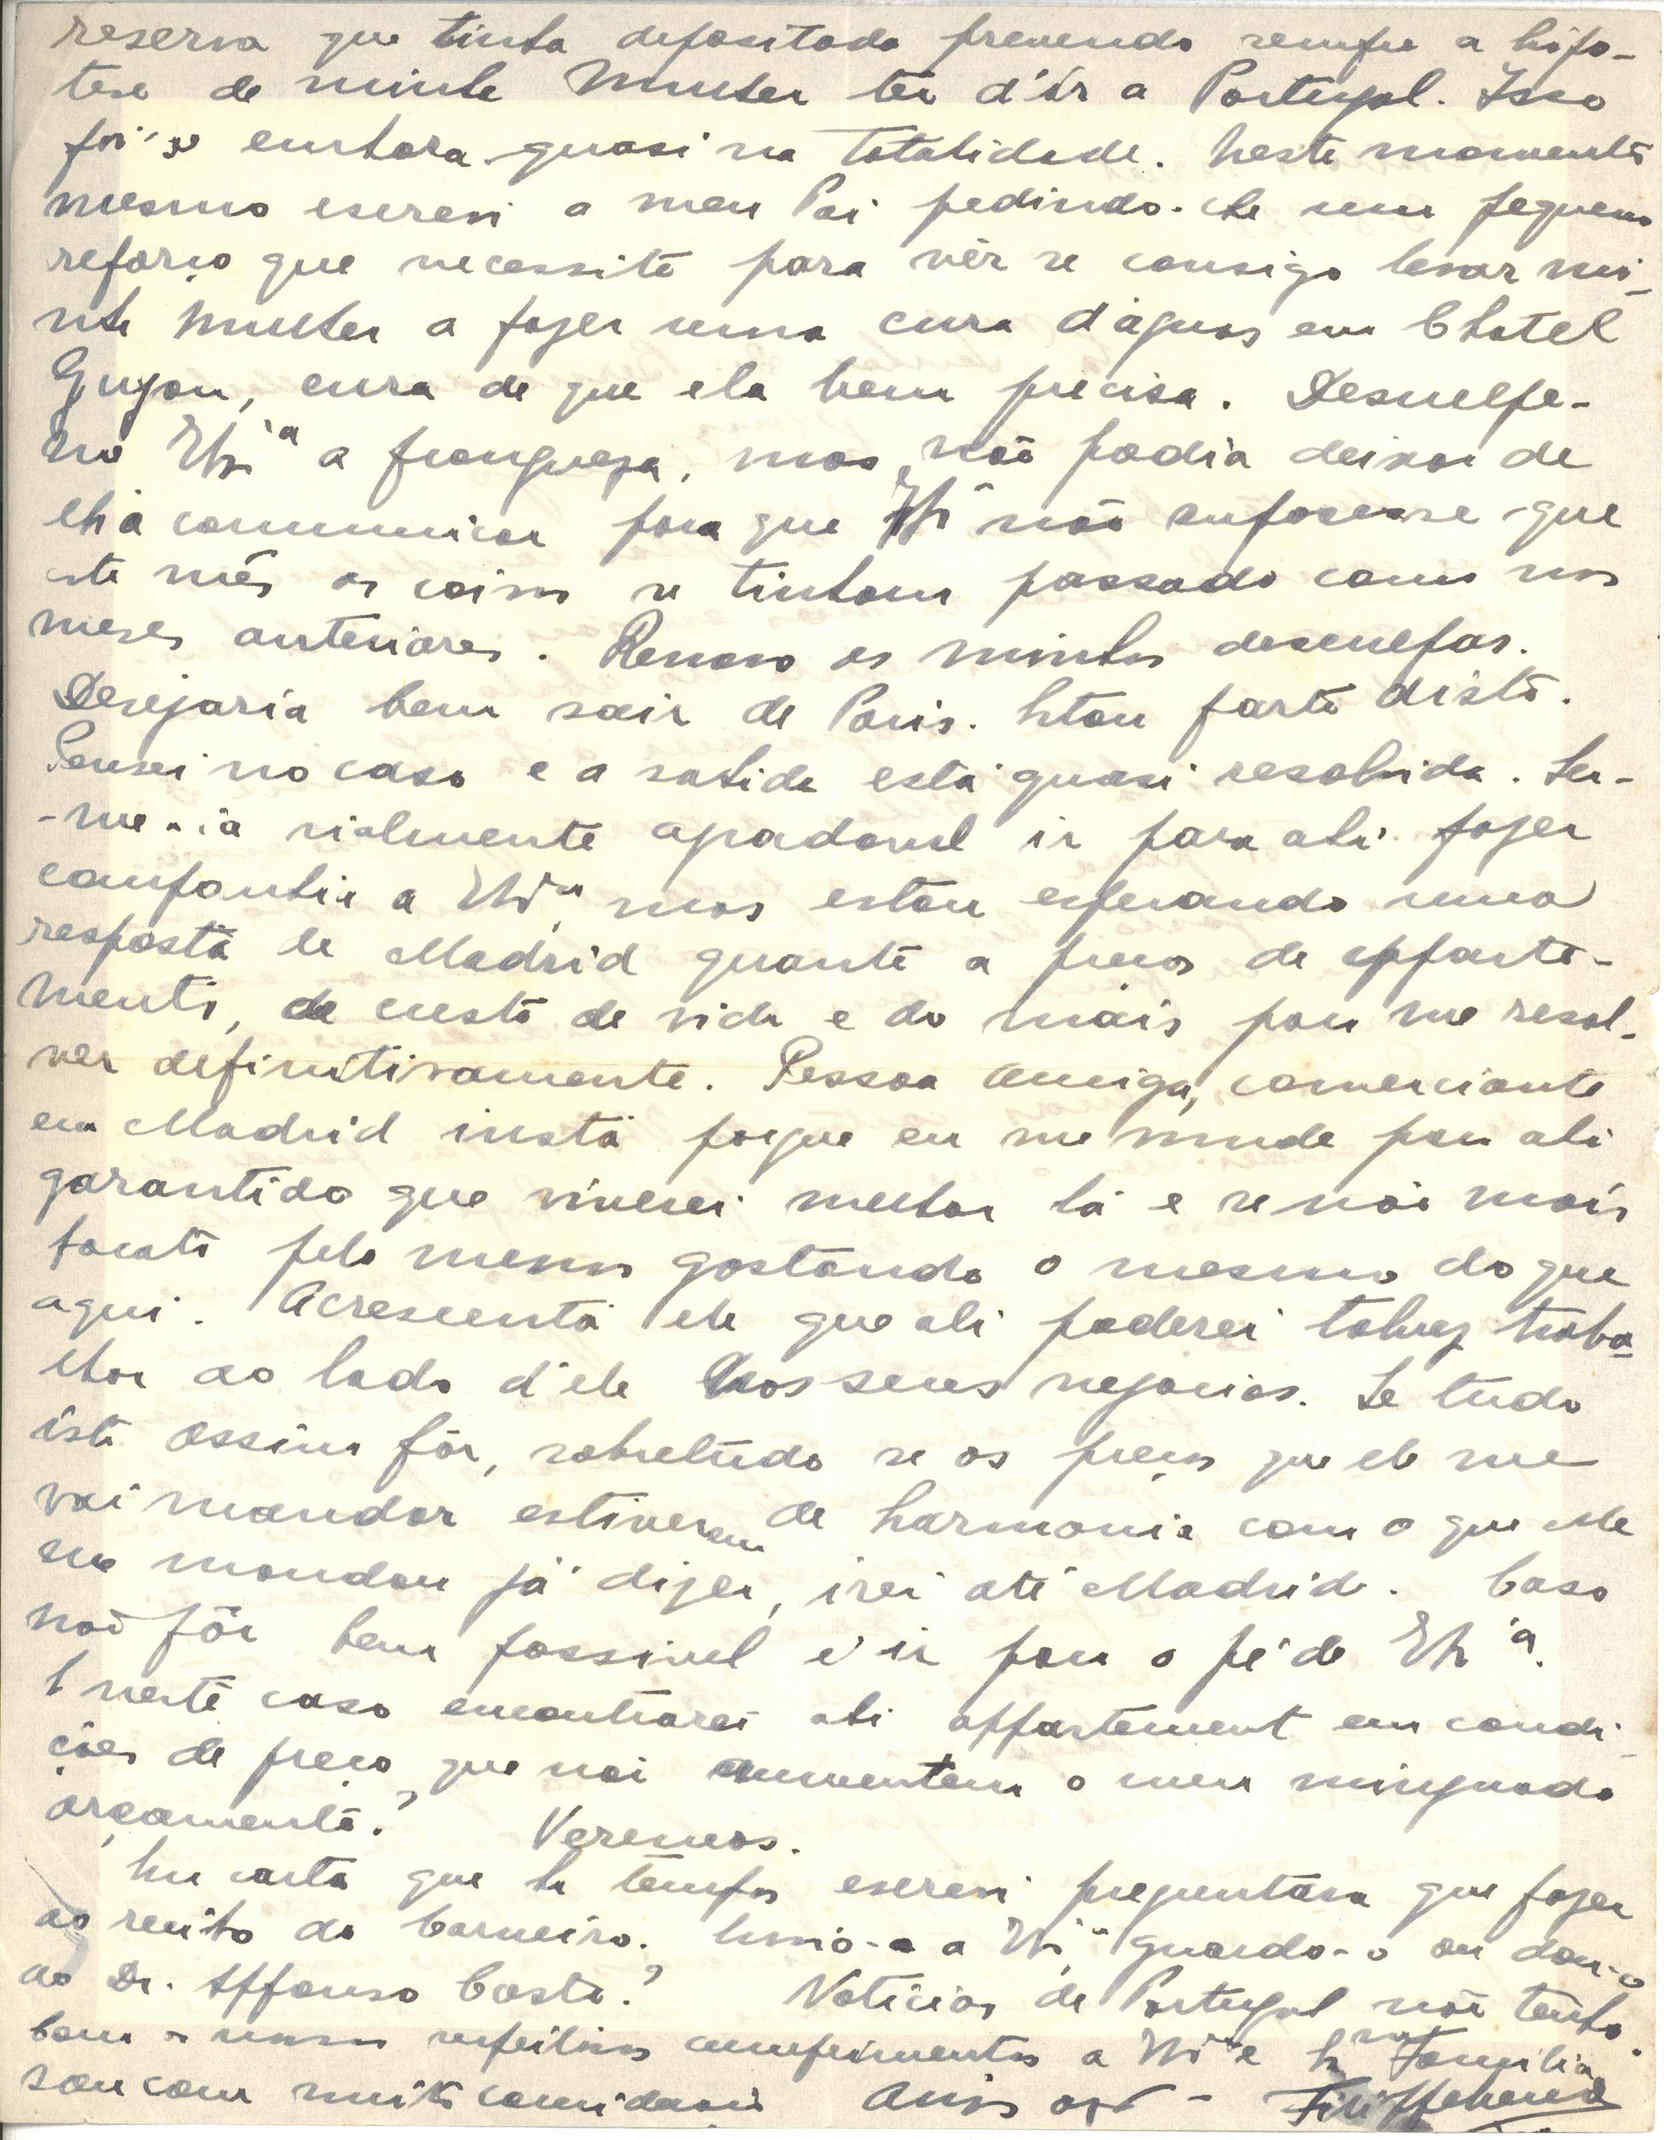 reserva que tinha depositado prevendo sempre a hipo-
tese de minha Mulher ter d'ir a Portugal. Isso
foi-se embora quasi na totalidade. Neste momento
mesmo escrevi a meu Pai pedindo-lhe um pequeno
reforço que necessito para vêr se consigo levar mi-
nha Mulher a fazer uma cura d'aguas em Chatel
Guyon, cura de que ela bem precisa. Desculpe-
me V. Exª a franqueza, mas não podia deixar de
lh'a comunicar para que V. Exª não supozesse que
este mês as coisas se tinham passado como nos
meses anteriores. Renovo as minhas desculpas.
Desejaria bem sair de Paris. Estou farto disto.
Pensei no caso e a sahida está quasi resolvida. Ser-
-me-ia rialmente agradavel ir para ahi fazer
companhia a V. Exª, mas estou esperando uma
resposta de Madrid quanto a preços de apparte-
ments, de custo de vida e do mais para me resol-
ver definitivamente. Pessoa amiga, comerciante
em Madrid insta porque eu me mude para ali
garantido que viverei melhor lá e se não mais
barato pelo menos gastando o mesmo do que
aqui. Acrescenta ele que ali poderei talvez traba-
lhar ao lado d'ele nos seus negocios. Se tudo
isto assim fôr, sobretudo se os preços que ele me
vai mandar estiverem de harmonia com o que ele
me mandou já dizer, irei até Madrid. Caso
não fôr bem possivel é ir para o pé de V. Exª.
E neste caso encontrarei ahi appartement em condi-
ções de preço que não aumentem o meu minguado
orçamento? Veremos.
Na carta que ha tempos escrevi preguntava que fazer
ao recibo do Carneiro. Envio-o a V. Exª guardo-o ou dou-o
ao Dr. Affonso Costa? Noticias de Portugal não tenho.
Com os nossos respeitosos cumprimentos a V. Exª e Exma Familia
sou com muita consideração Amigo